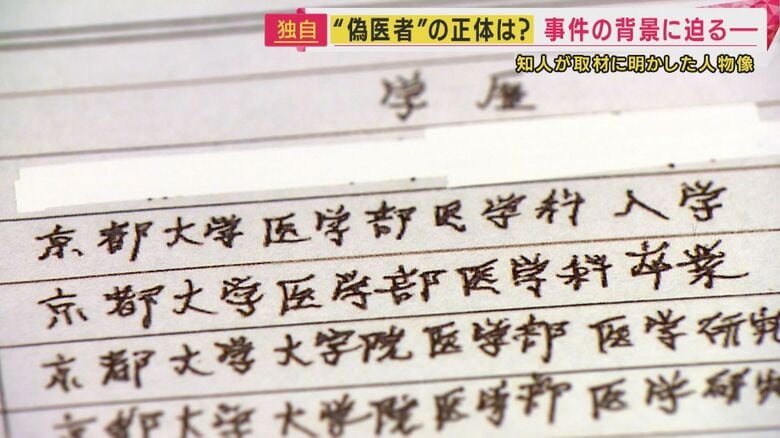 独自 “偽医者”の正体は? 事件の背景に迫る―
知人が取材に明かした人物像
学歴
京都大学医学部医学科 入学
京都大学医学部医学科卒業
京都大学大学院医学部 医学研究
京都大学大学院医学部 医学研究